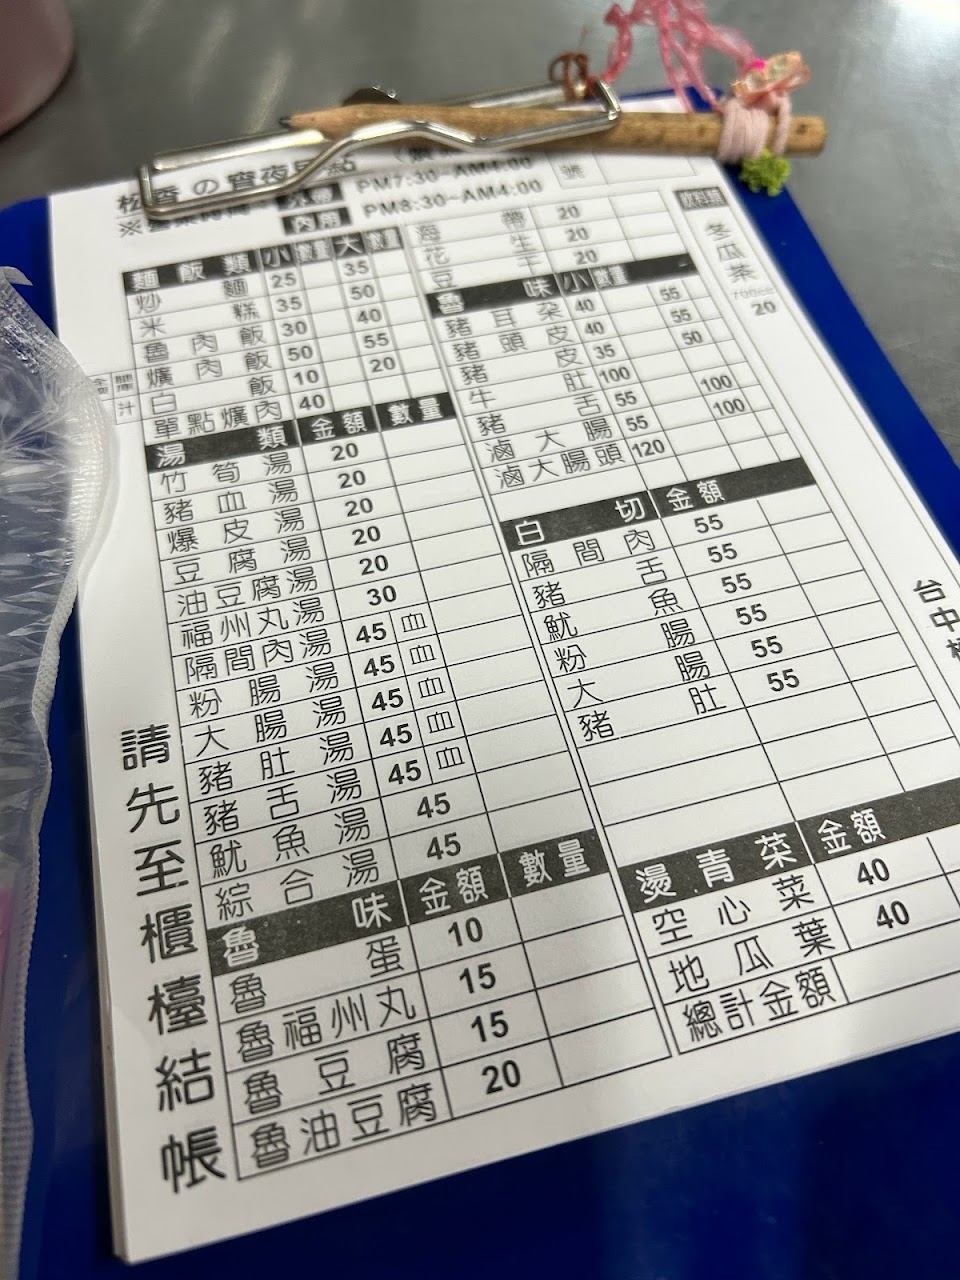 松香の宵夜
PM7:30~AM4:00
內用 PM8:30~AM4:00
號
麵飯類 小 數量 大 數量
炒麵 25 35
米糕 35 50
魯肉飯 30 40
爌肉飯 50 55
白飯 10 20
單點爌肉 40
湯類 金額 數量
竹筍湯 20
豬血湯 20
爆皮湯 20
豆腐湯 20
油豆腐湯 20
福州丸湯 30
隔間肉湯 45 血
粉腸湯 45 血
大腸湯 45 血
豬肚湯 45 血
豬舌湯 45 血
魷魚湯 45
綜合湯 45
魯味 金額 數量
魯蛋 10
魯福州丸 15
魯豆腐 15
魯油豆腐 20
海帶 20
花生 20
豆干 20
魯味 小 數量
豬耳朵 40 55
豬頭皮 40 55
豬皮 35 50
牛肚 100
豬舌 55 100
滷大腸 55 100
滷大腸頭 120
白切 金額
隔間肉 55
豬舌 55
魷魚 55
粉腸 55
大腸 55
豬肚 55
燙青菜 金額
空心菜 40
地瓜葉 40
總計金額
飲料類
冬瓜茶
700cc
20
台中
請先至櫃檯結帳